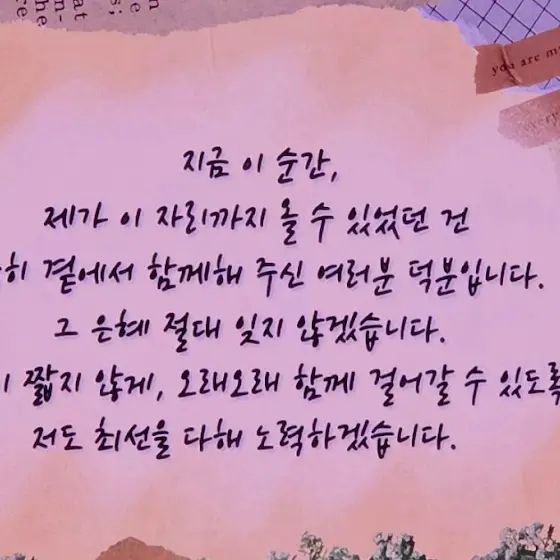 at
the
n-
re
s;
you are m
very
지금 이 순간,
제가 이 자리까지 올 수 있었던 건
히 곁에서 함께해 주신 여러분 덕분입니다.
그 은혜 절대 잊지 않겠습니다.
짧지 않게, 오래오래 함께 걸어갈 수 있도록
저도 최선을 다해 노력하겠습니다.